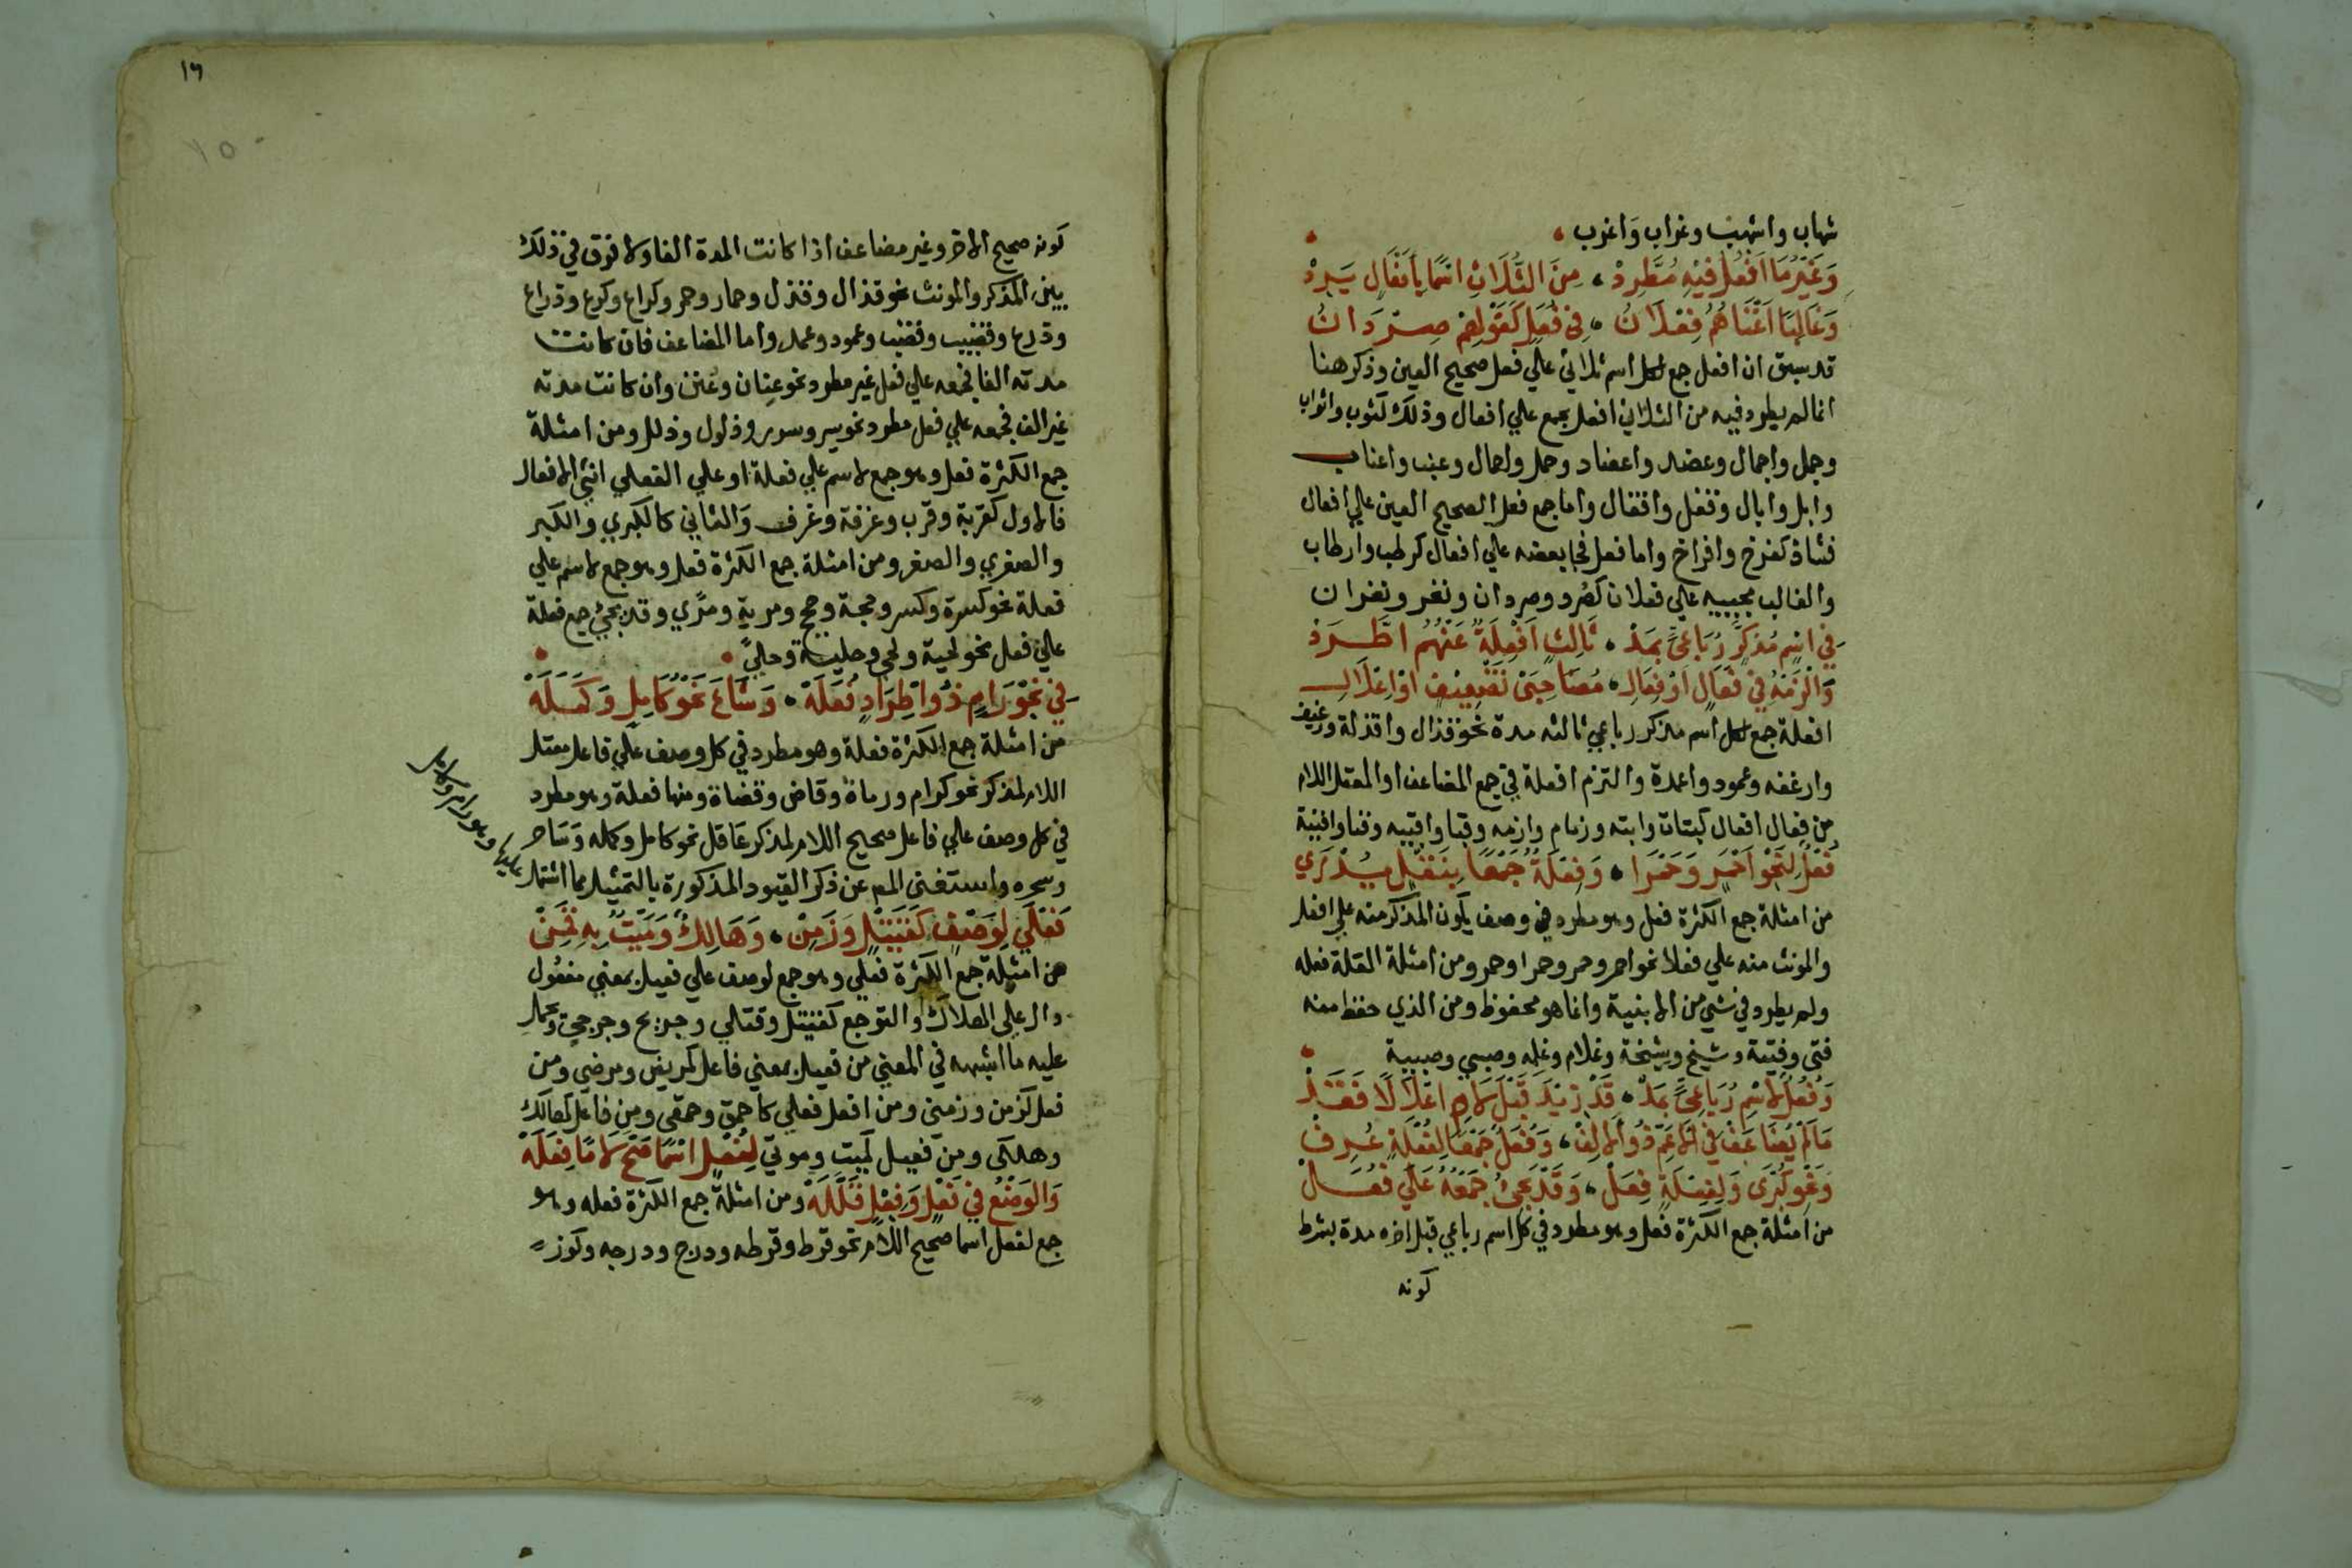 شهاب واشهب وغراب واغرب
وَغَيْرُ مَا اَفْعُلُ فِيْهِ مُطَّرِدْ ، مِنَ الثُّلَاثِ اسْمًا بِأَفْعَالٍ يَرِدْ
وَغَالِبًا اَغْنَاهُمُ فِعْلَانُ ، فِي فُعَلٍ كَقَوْلِهِمْ صِرْدَانُ
قد سبق ان افعل جمع لكل اسم ثلاثي علي فعل صحيح العين وذكر هنا
انما لم يطرد فيه من الثلاثي افعل يجمع علي افعال وذلك كثوب واثواب
وجمل واجمال وعضد واعضاد وحمل واحمال وعنب واعناب
وابل وابال وقفل واقفال واما جمع فعل الصحيح العين علي افعال
فشاذ كفرخ وافراخ واما فعل فجا بعضه علي افعال كرطب وارطاب
والغالب مجييه علي فعلان كصرد وصردان ونغر ونغران
فِي اسْمٍ مُذَكَّرٍ رُبَاعِيٍّ بِمَدْ ، ثَالِثٍ اَفْعِلَةُ عَنْهُمُ اطَّرَدْ
وَالْزَمْهُ فِي فَعَالٍ اَوْ فِعَالِ ، مُصَاحِبَيْ تَضْعِيْفٍ اَوْ اِعْلَالِ
افعلة جمع لكل اسم مذكر رباعي ثالثه مدة نحو قذال واقذلة ورغيف
وارغفه وعمود واعمدة والتزم افعلة في جمع المضاعف او المعتل اللام
من فعال افعال كبتات وابته وزمام وازمه وقبا واقبيه وفنا وافنية
فُعْلٌ لِنَحْوِ اَحْمَرٍ وَحَمْرَا ، وَفِعْلَةٌ جَمْعًا بِنَقْلٍ يُدْرَي
من امثلة جمع الكثرة فعل وهو مطرد في وصف يكون المذكر منه علي افعل
والمونث منه علي فعلا نحو احمر وحمر وحمرا وحمر ومن امثلة القلة فعله
ولم يطرد في شي من الابنية وانما هو محفوظ ومن الذي حفظ منه
فتى وفتية وشيخ وشيخة وغلام وغلمه وصبي وصبية
وَفُعُلٌ لِاسْمٍ رُبَاعِيٍّ بِمَدْ ، قَدْ زِيْدَ قَبْلَ لَامٍ اعْلَالًا فَقَدْ
مَا لَمْ يُضَاعَفْ فِي الاَعَمِّ ذُو الاَلِفْ ، وَفُعَلٌ جَمْعًا لِفُعْلَةٍ عُرِفْ
وَنَحْوِ كُبْرَى وَلِفِعْلَةٍ فِعَلْ ، وَقَدْ يَجِيْءُ جَمْعُهُ عَلَي فُعَلْ
من امثلة جمع الكثرة فعل وهو مطرد في كل اسم رباعي قبل اخره مدة بشرط
كونه
١٦
١٥
كونه صحيح الاخر وغير مضاعف اذا كانت المدة الفا ولا فرق في ذلك
بين المذكر والمونث نحو قذال وقذل وحمار وحمر وكراع وكرع وذراع
وذرع وقضيب وقضب وعمود وعمد واما المضاعف فان كانت
مدته الفا فجمعه علي فعل غير مطرد نحو عنان وعنن وان كانت مدته
غير الف فجمعه علي فعل مطرد نحو سرير وسرر وذلول وذلل ومن امثلة
جمع الكثرة فعل وهو جمع لاسم علي فعلة او علي الفعلي انثي الافعال
فالاول كقربة وقرب وغرفة وغرف والثاني كالكبري والكبر
والصغري والصغر ومن امثلة جمع الكثرة فعل وهو جمع لاسم علي
فعلة نحو كسرة وكسر وحجة وحجج ومرية ومري وقد يجئ جمع فعلة
علي فعل نحو لحية ولحي وحلية وحلي
فِي نَحْوِ رَامٍ ذُو اطِّرَادٍ فُعَلَهْ ، وَشَاعَ نَحْوُ كَامِلٍ وَكَمَلَهْ
من امثلة جمع الكثرة فعلة وهو مطرد في كل وصف علي فاعل معتل
اللام لمذكر نحو كرام ورماة وقاض وقضاة ومنها فعلة وهو مطرد
في كل وصف علي فاعل صحيح اللام لمذكر عاقل نحو كامل وكمله وساحر
وسحره واستغنى المص عن ذكر القيود المذكورة بالتمثيل بما اشتمل
عليها وهو رام وكامل
فَعْلَي لِوَصْفٍ كَقَتِيْلٍ وَزَمِنْ ، وَهَالِكٌ وَمَيِّتٌ بِهِ قَمِنْ
من امثلة جمع الكثرة فعلي وهو جمع لوصف علي فعيل بمعني مفعول
دال علي الهلاك او التوجع كقتيل وقتلي وجريح وجرحي ويحمل
عليه ما اشبهه في المعني من فعيل بمعني فاعل كمريض ومرضي ومن
فعل كزمن وزمني ومن افعل فعلي كاحمق وحمقى ومن فاعل كهالك
وهلكى ومن فيعل كميت وموتي لِفُعْلٍ اسْمًا صَحَّ لَامًا فِعَلَهْ
وَالوَضْعُ فِي فَعْلٍ وَفِعْلٍ قَلَّلَهْ ومن امثلة جمع الكثرة فعله وهو
جمع لفعل اسما صحيح اللام نحو قرط وقرطه ودرج ودرجه وكوز